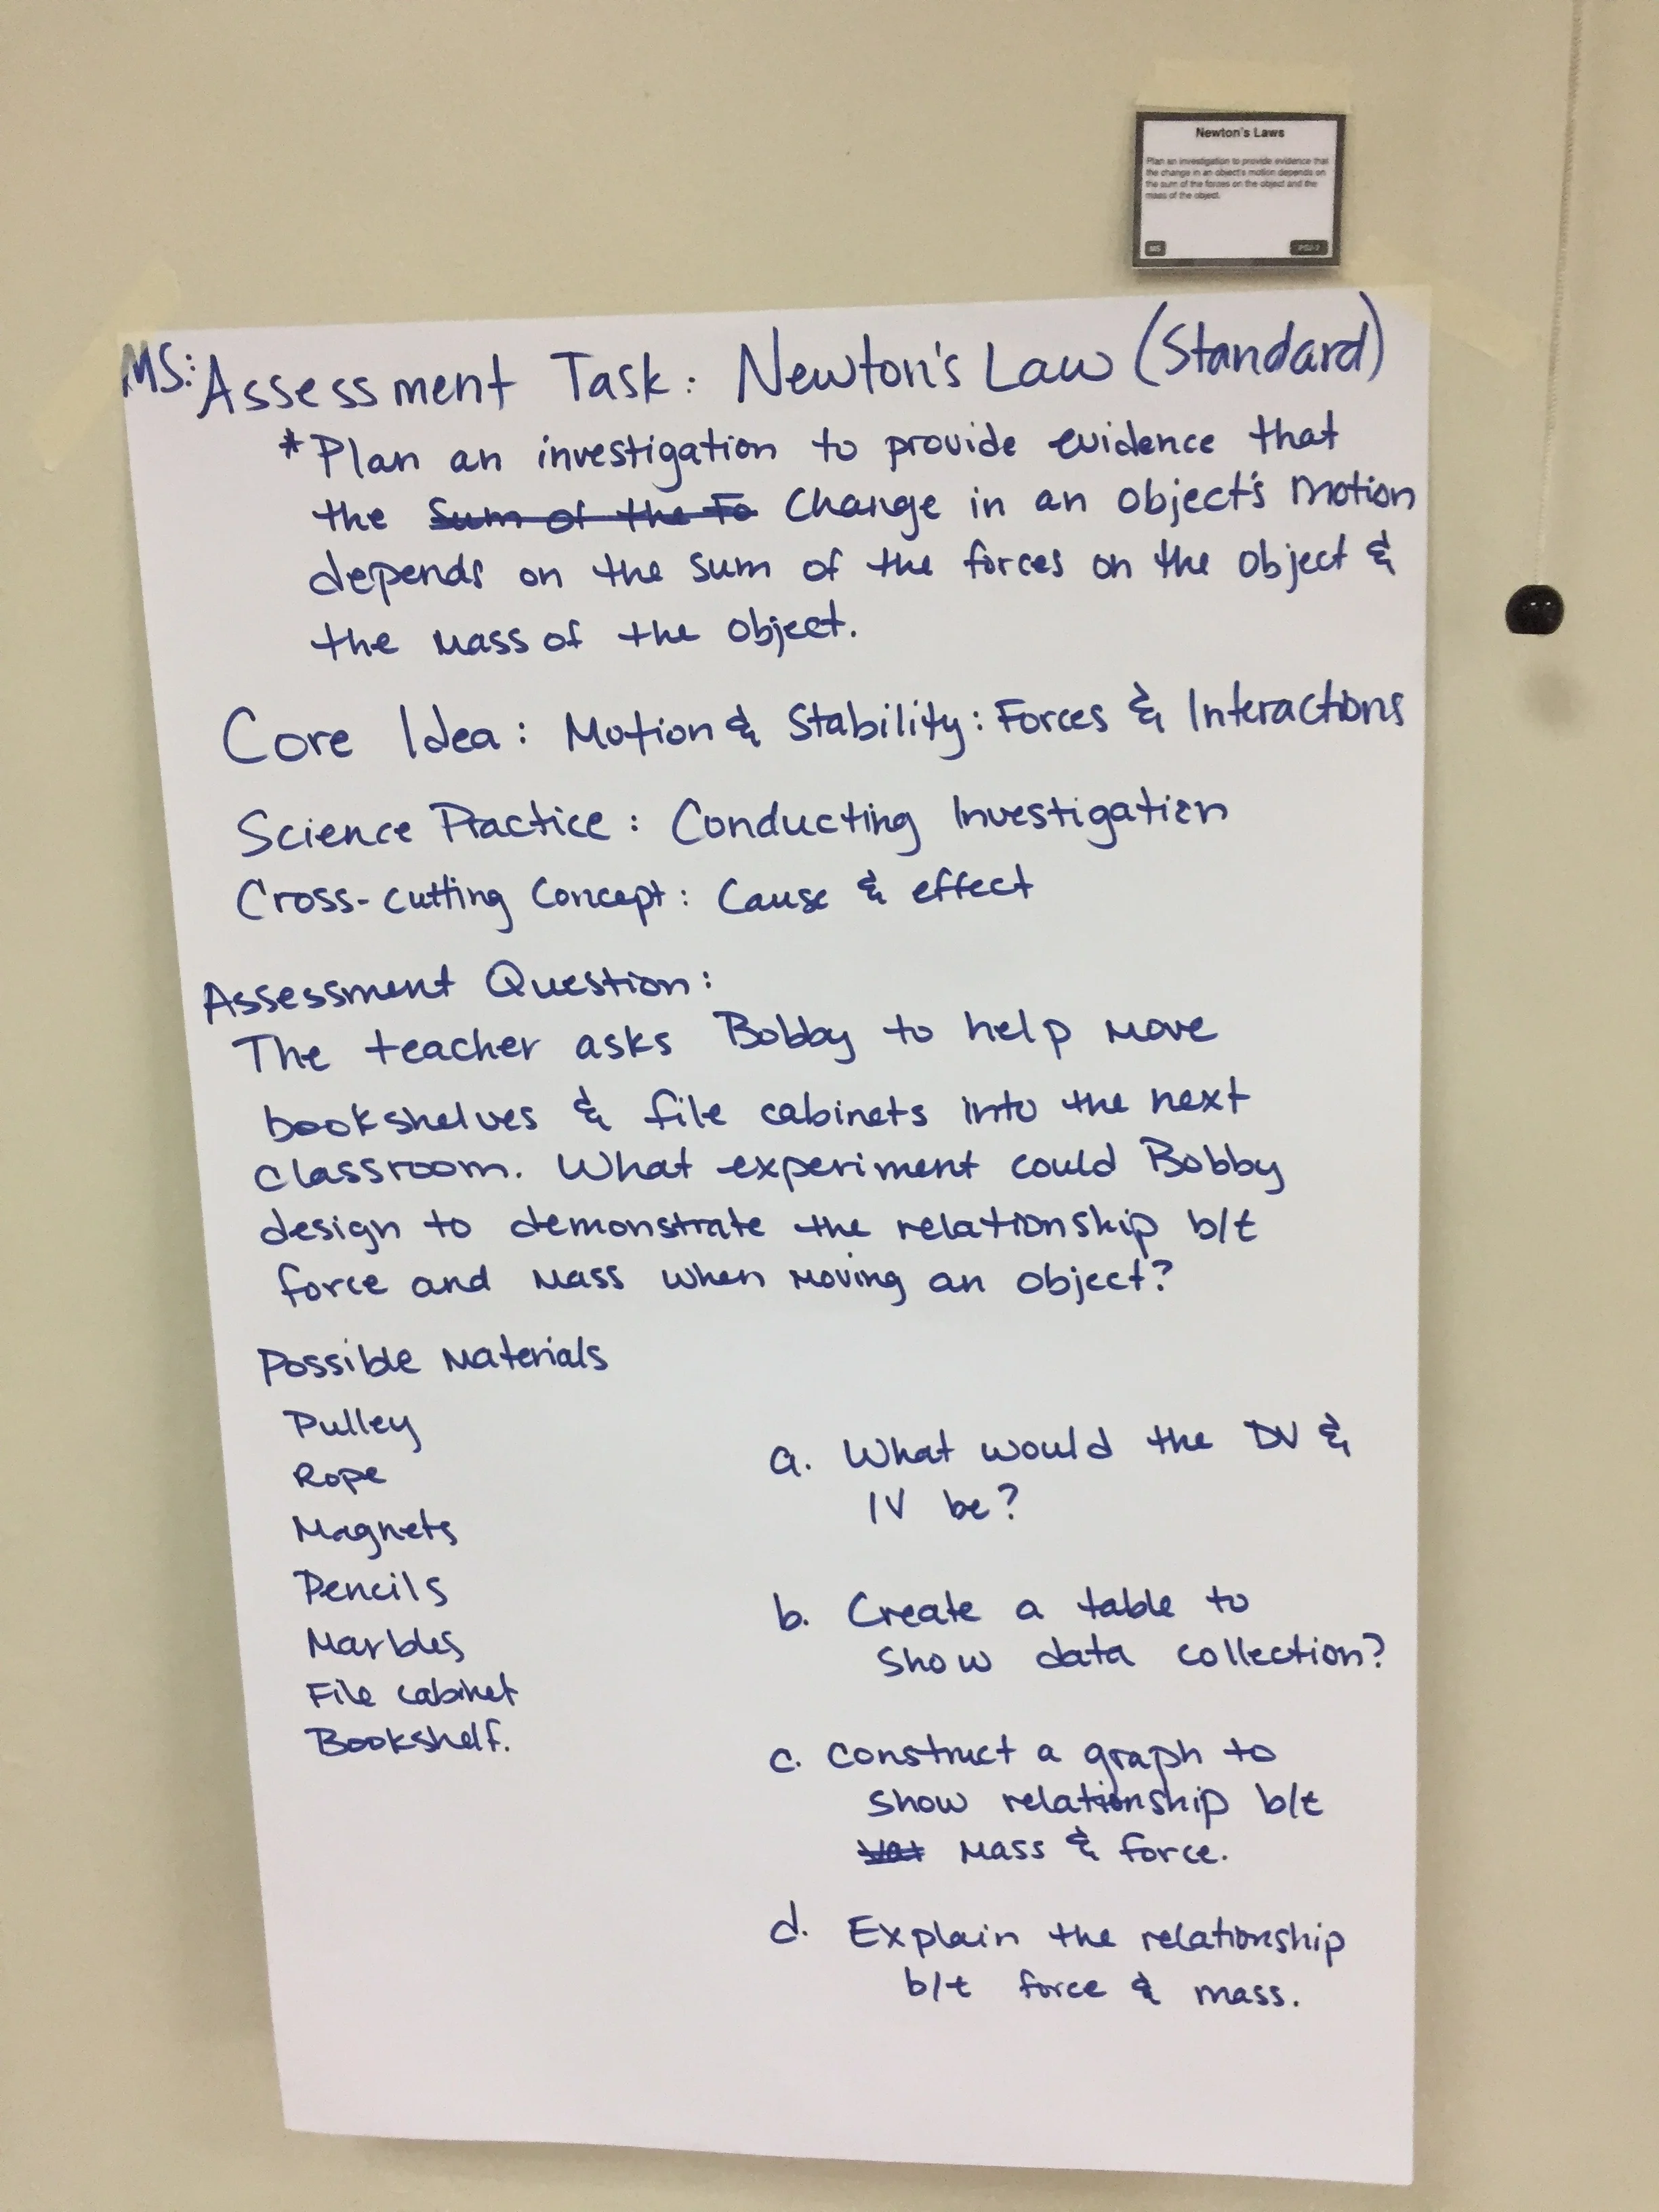 Newton's Laws
Plan an investigation to provide evidence that
the change in an object's motion depends on
the sum of the forces on the object and the
mass of the object.
MS
MS: Assessment Task: Newton's Law (Standard)
*Plan an investigation to provide evidence that
the Sum of the Fo Change in an object's motion
depends on the sum of the forces on the object &
the mass of the object.
Core Idea: Motion & Stability: Forces & Interactions
Science Practice: Conducting Investigation
Cross-cutting Concept: Cause & effect
Assessment Question:
The teacher asks Bobby to help move
bookshelves & file cabinets into the next
classroom. What experiment could Bobby
design to demonstrate the relationship b/t
force and mass when moving an object?
Possible Materials
Pulley
Rope
Magnets
Pencils
Marbles
File cabinet
Bookshelf.
a. What would the DV &
IV be?
b. Create a table to
show data collection?
c. construct a graph to
show relationship b/t
mass & force.
d. Explain the relationship
b/t force & mass.